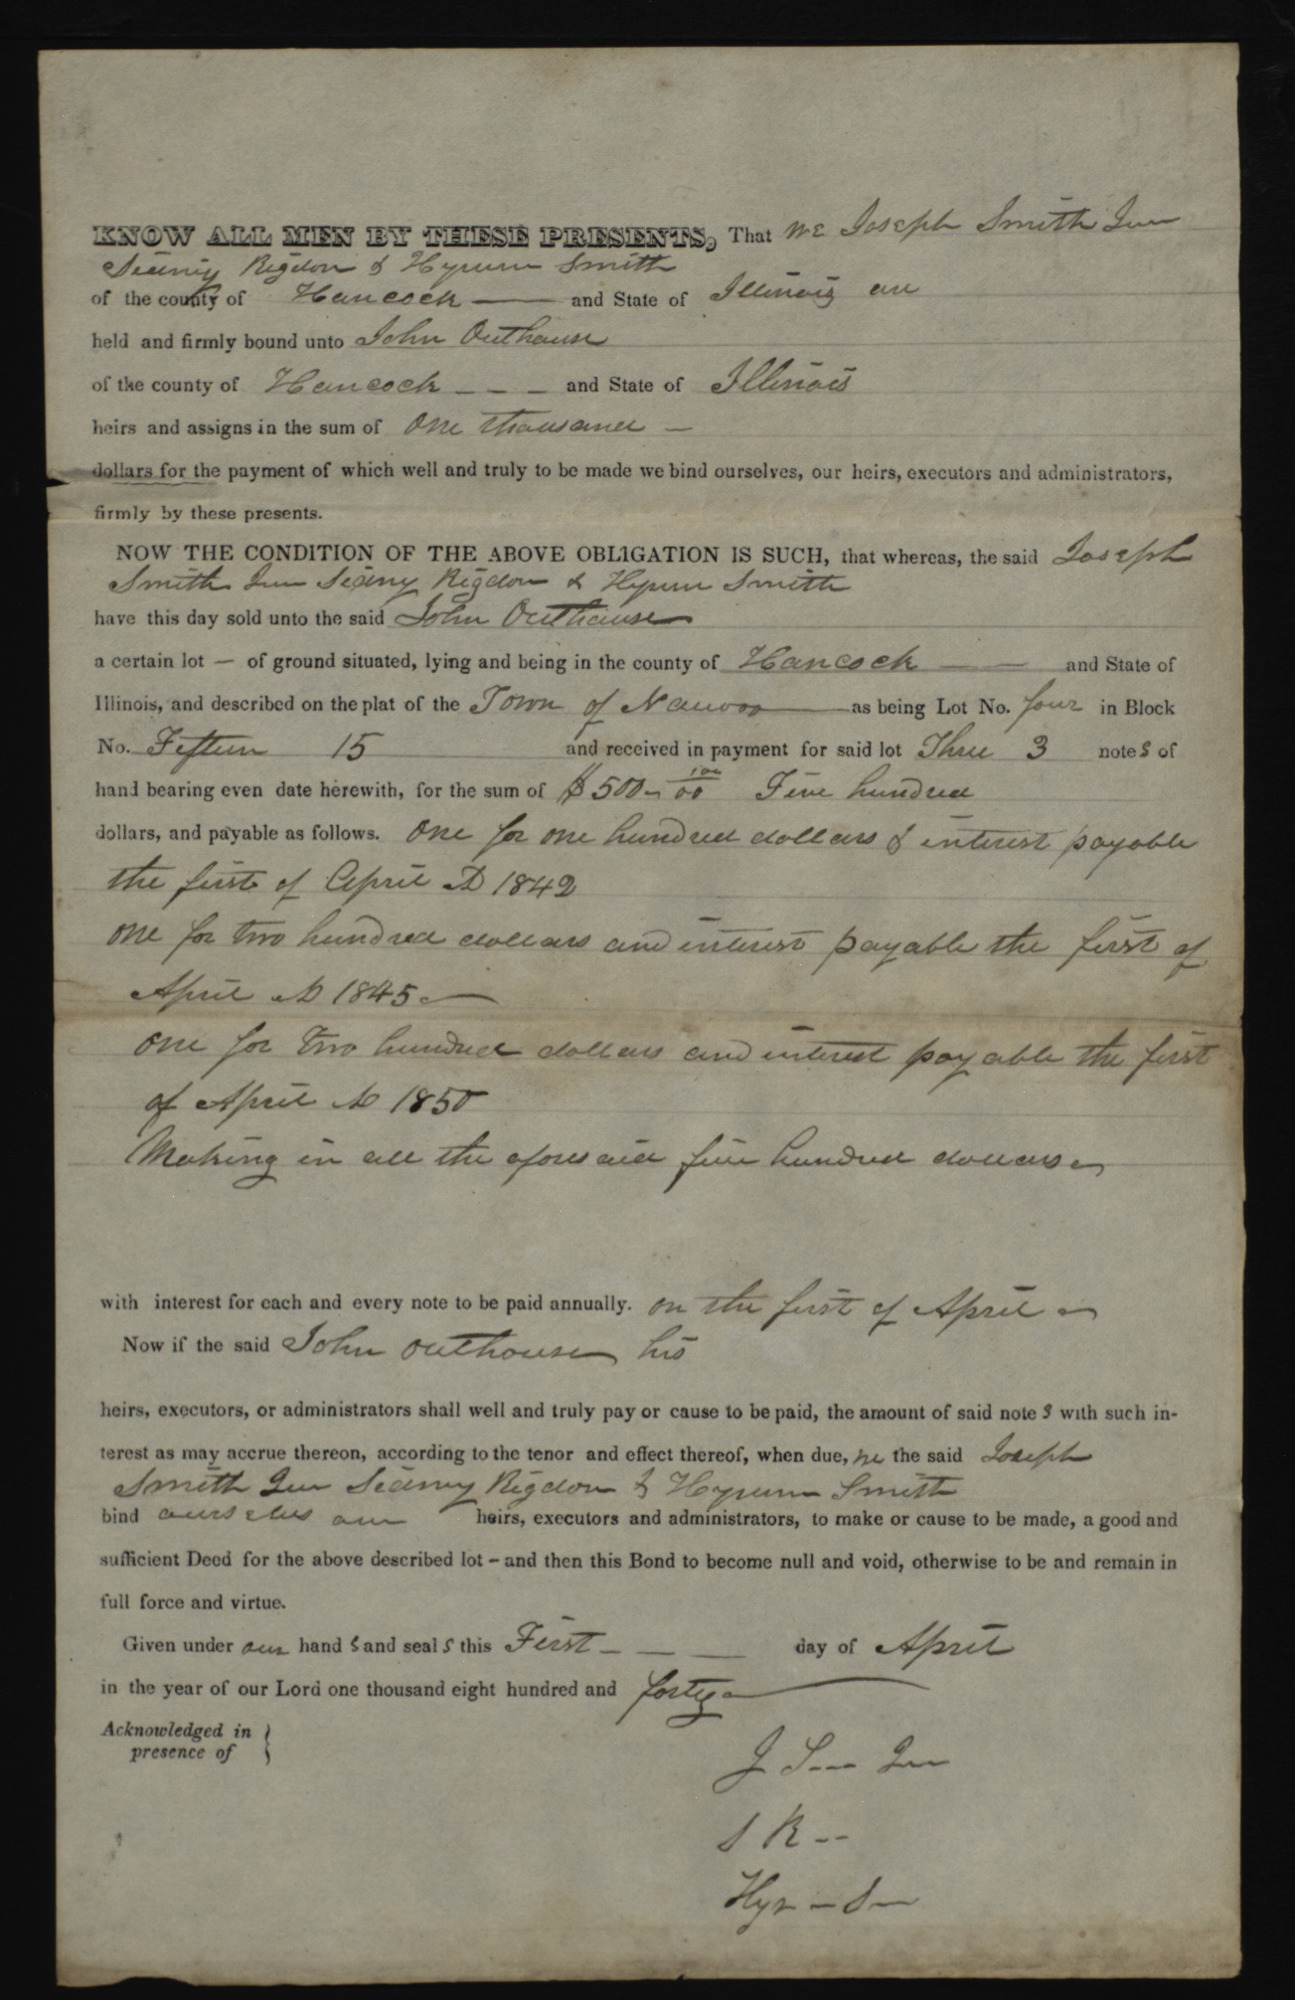 KNOW ALL MEN BY THESE PRESENTS, That we Joseph Smith Jun
Sidny Rigdon & Hyrum Smith
of the county of Hancock —— and State of Illinois are
held and firmly bound unto John Outhouse
of the county of Hancock - - - and State of Illinois
heirs and assigns in the sum of One thousand —
dollars for the payment of which well and truly to be made we bind ourselves, our heirs, executors and administrators,
firmly by these presents.
NOW THE CONDITION OF THE ABOVE OBLIGATION IS SUCH, that whereas, the said Joseph
Smith Jun Sidny Rigdon & Hyrum Smith
have this day sold unto the said John Outhouse
a certain lot — of ground situated, lying and being in the county of Hancock — — and State of
Illinois, and described on the plat of the Town of Nauvoo —— as being Lot No. four in Block
No. Fifteen 15 and received in payment for said lot Three 3 notes of
hand bearing even date herewith, for the sum of $500- 100/00 Five hundred
dollars, and payable as follows. One for one hundred dollars & interest payable
the first of April AD 1842
one for two hundred dollars and interest payable the first of
April AD 1845 —
One for two hundred dollars and interest payable the first
of April AD 1850
Making in all the aforesaid five hundred dollars —
with interest for each and every note to be paid annually. on the first of April —
Now if the said John Outhouse his
heirs, executors, or administrators shall well and truly pay or cause to be paid, the amount of said note s with such in-
terest as may accrue thereon, according to the tenor and effect thereof, when due, we the said Joseph
Smith Jun Sidny Rigdon & Hyrum Smith
bind ourselves our heirs, executors and administrators, to make or cause to be made, a good and
sufficient Deed for the above described lot - and then this Bond to become null and void, otherwise to be and remain in
full force and virtue.
Given under our hand s and seal s this First - — — day of April
in the year of our Lord one thousand eight hundred and forty —
Acknowledged in }
presence of
J S-- Jun
S R --
Hyr — S —